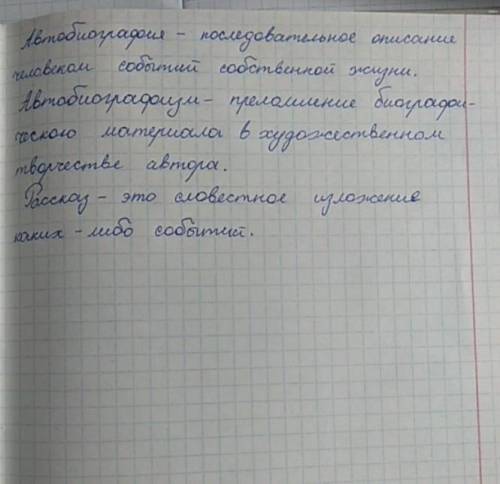 Автобиография - последовательное описание
человеком событий собственной жизни.
Автобиографизм - преломление биографи-
ческого материала в художественном
творчестве автора.
Рассказ - это словестное изложение
каких-либо событий.